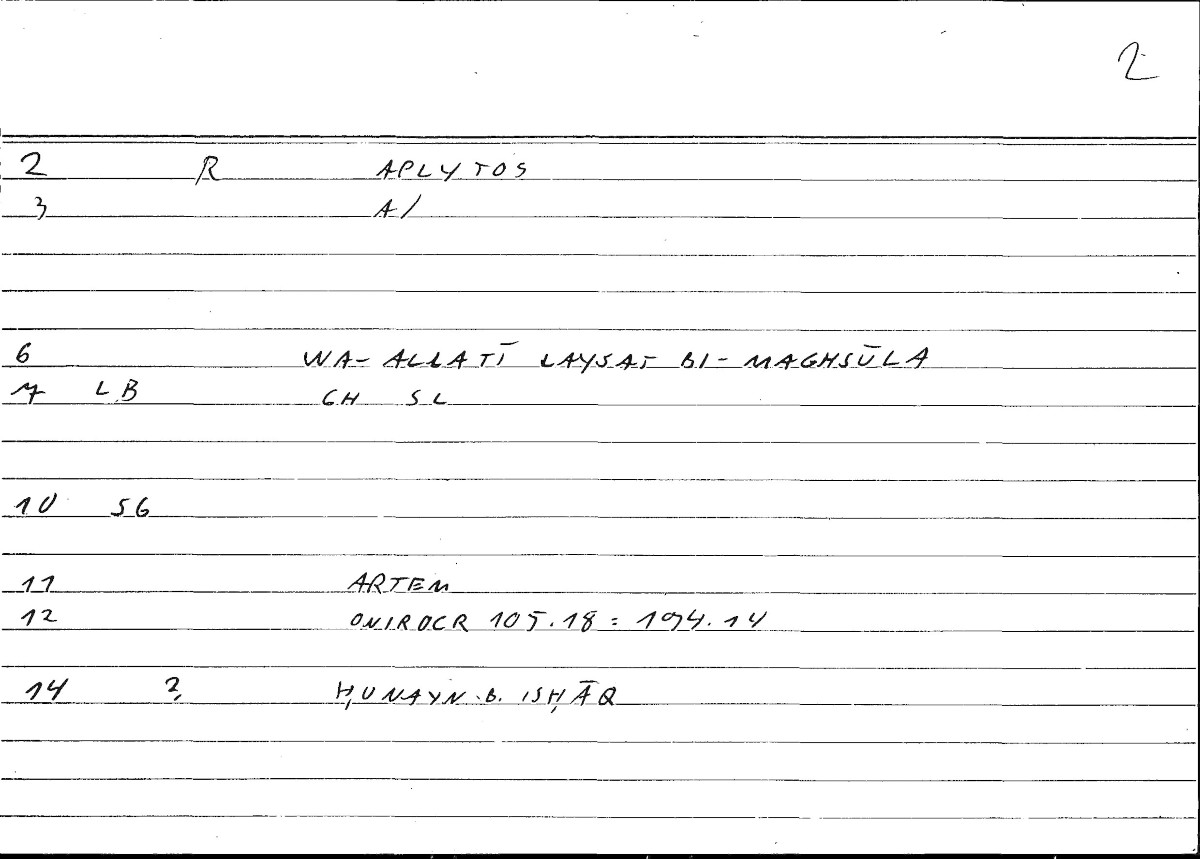 2
2 R APLYTOS
3 A/
6 WA-ALLATĪ LAYSAT BI-MAGHSŪLA
7 LB GH SL
10 SG
11 ARTEM
12 ONIROCR 105.18 = 194.14
14 ? ḤUNAYN.B. ISḤĀQ